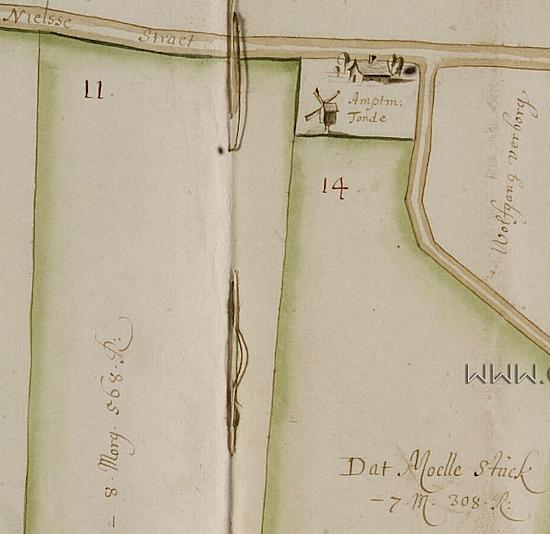 Nielsse Straet
11.
Amptm:
Tonde
14
Wolfgang verborg
8. Morg. 568. R:
Dat Moelle Stuck
- 7. M. 308. R:
www.